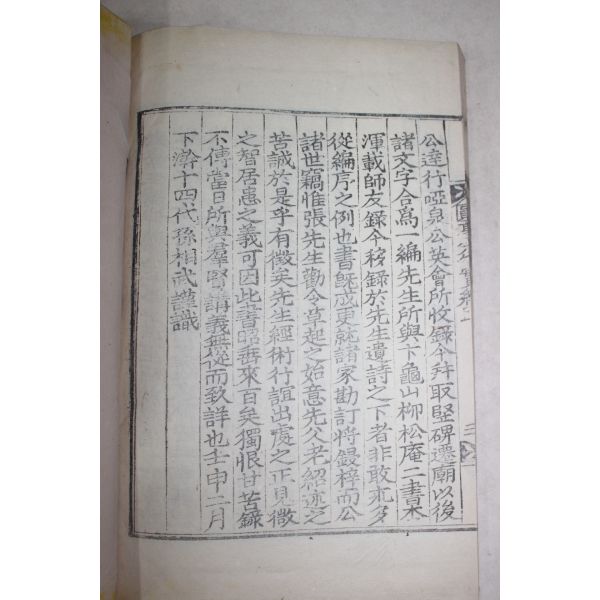 公達行啞泉公英會所收錄今幷取竪碑遷廟以後
諸文字合爲一編先生所與卞龜山柳松庵二書本
渾載師友錄今移錄於先生遺詩之下者非敢求多
從編序之例也書旣成更就諸家勘訂將鋟梓而公
諸世竊惟張先生勸令草起之始意先父老紹述之
苦誠於是乎有徵矣先生經術行誼出處之正見微
之智居患之義可因此書昭垂來百矣獨恨甘苦錄
不傳當日所與羣賢講義無從而致詳也壬申二月
下澣十四代孫相武謹識